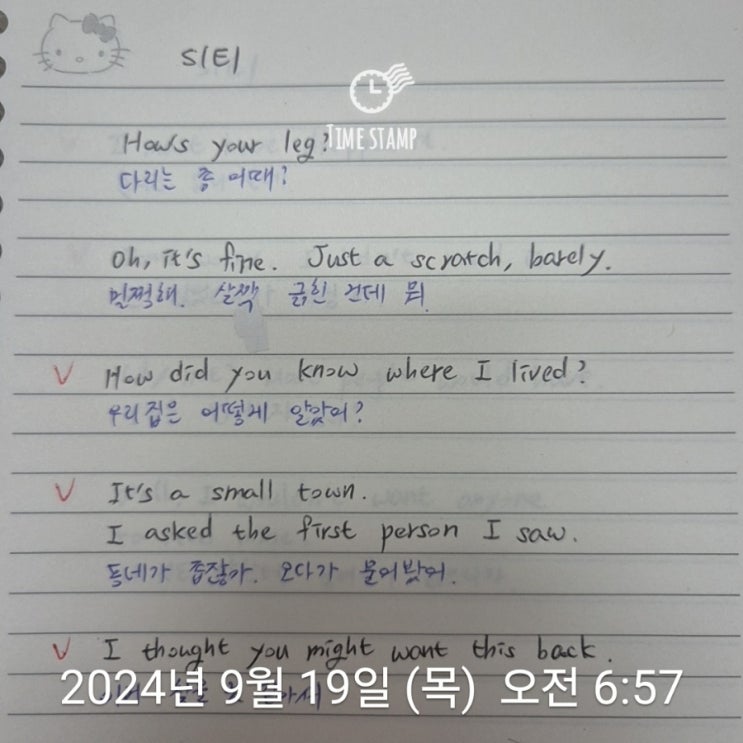 S1E1
TIME STAMP
How's your leg?
다리는 좀 어때?
Oh, it's fine. Just a scratch, barely.
멀쩍해. 살짝 긁힌 건데 뭐
V How did you know where I lived?
우리집은 어떻게 알았어?
V It's a small town.
I asked the first person I saw.
동네가 좁잖아. 오다가 물어봤어.
V I thought you might want this back.
2024년 9월 19일 (목) 오전 6:57